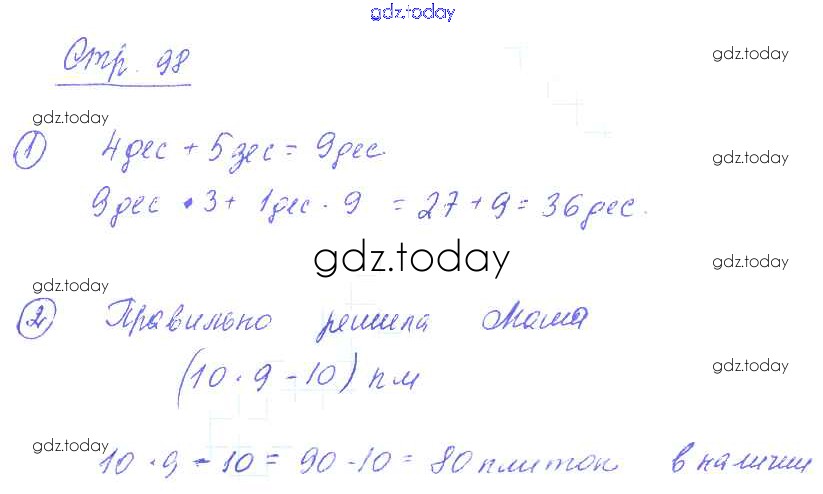 gdz.today
Стр. 98
gdz.today
gdz.today
① 4дес + 5дес = 9дес.
gdz.today
9дес · 3 + 1дес · 9 = 27 + 9 = 36дес.
gdz.today
gdz.today
gdz.today
② Правильно решила Маша
(10 · 9 - 10) пл
gdz.today
gdz.today
10 · 9 - 10 = 90 - 10 = 80 плиток в наличии